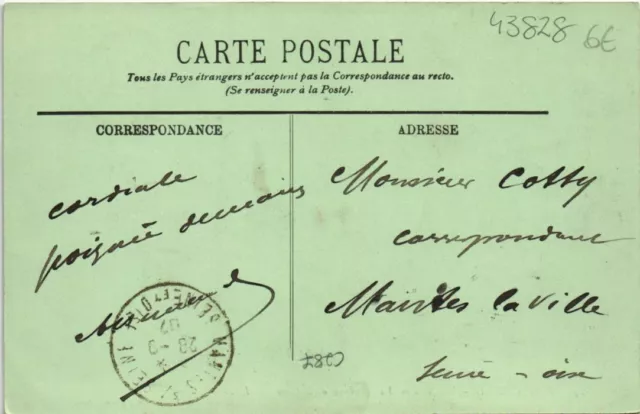 43828 6€
CARTE POSTALE
Tous les Pays étrangers n'acceptent pas la Correspondance au recto.
(Se renseigner à la Poste).
CORRESPONDANCE
ADRESSE
cordiale
poignée de mains
Monsieur Cotty
correspondant
Mantes la Ville
Seine - oise
MANTES S. SEINE SEINE ET OISE
28-9
07